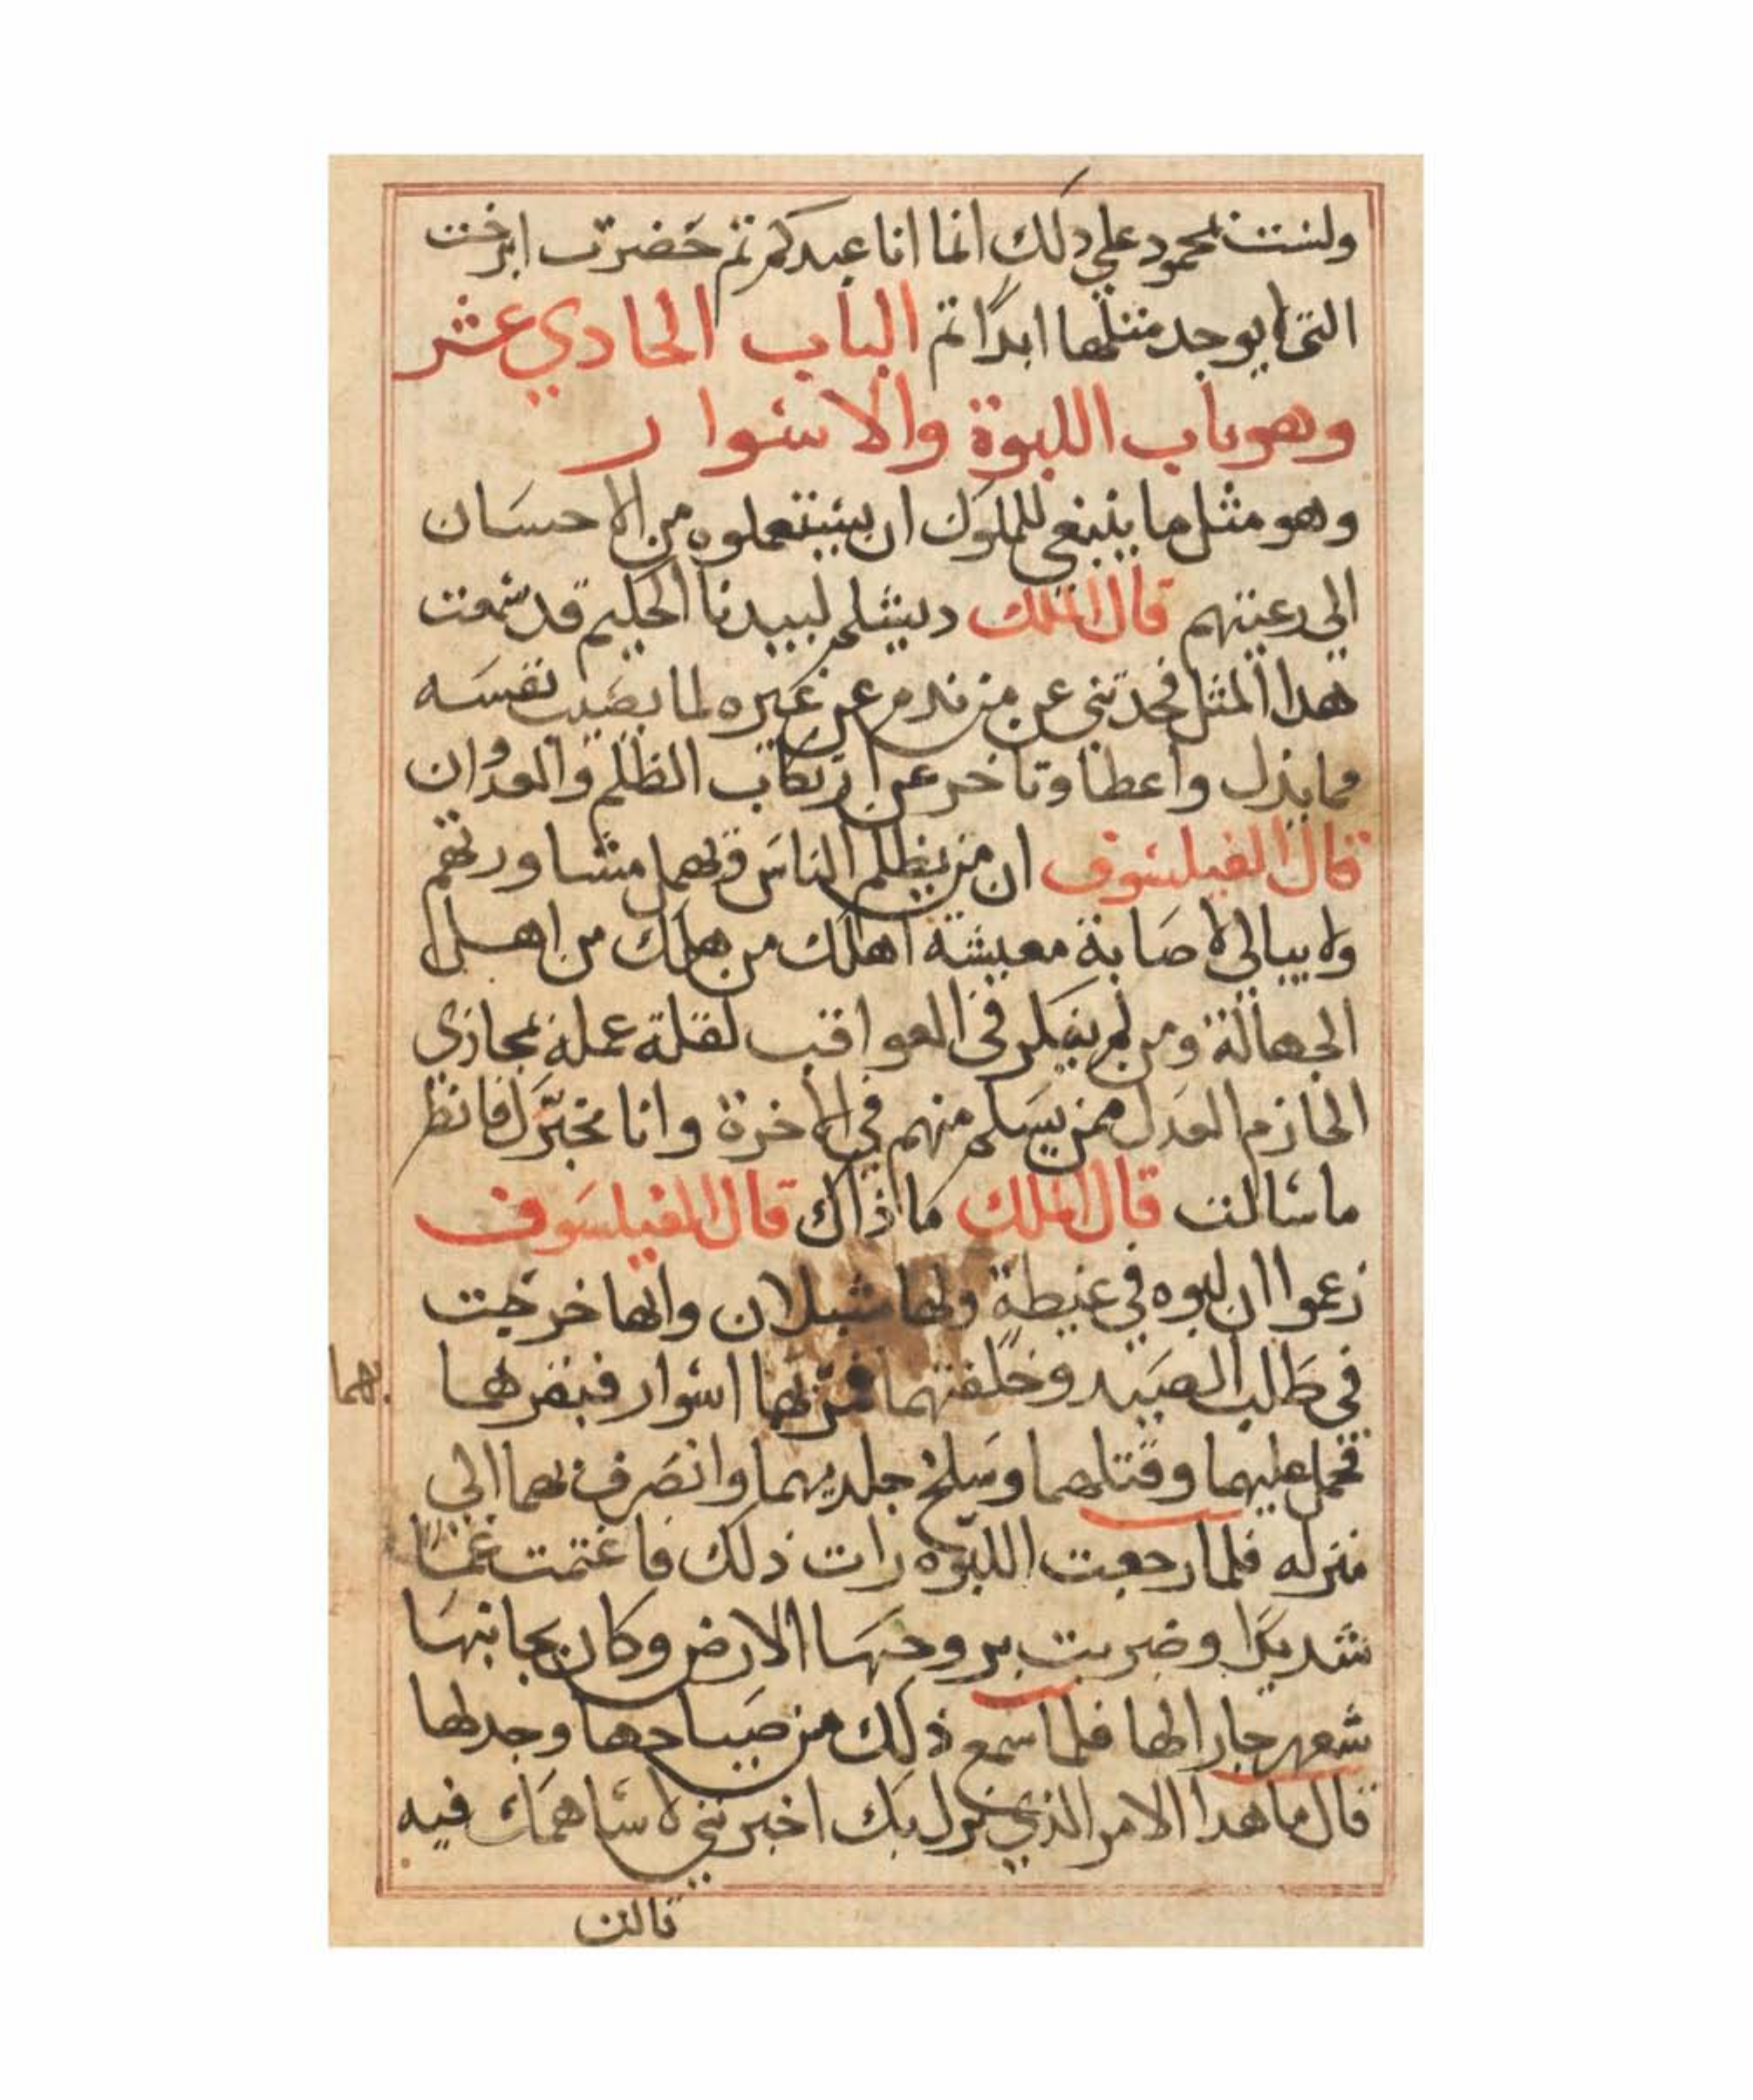 ولست بمحمود علي دلك انما انا عبدكم ثم حضرت ابرخت
التي لا يوجد مثلها ابدًا تم الباب الحادي عشر
وهو باب اللبوة والاسوار
وهو مثل ما ينبغي للملوك ان يستعملوه من الاحسان
الي رعيتهم قال الملك ديشلم لبيدبا الحكيم قد سمعت
هدا المثل فحدثني عن من ندم عن غيره لما يصيب نفسه
مما بذل واعطا وتاخر عن ارتكاب الظلم والعدوان
قال الفيلسوف ان من يظلم الناس ويهمل مشاورتهم
ولا يبالي لاصابة معيشة اهلك من هلك من اهل
الجهالة ومن لم يفكر في العواقب لقلة عمله بمجازي
الحازم العدل ممن يسلم منهم في الاخرة وانا مخبرك فانظر
ما سالت قال الملك ما ذاك قال الفيلسوف
زعموا ان لبوه في غيطة ولها شبلان وانها خرجت
في طلب الصيد وخلفتهما فمر بها اسوار فبفرهما
بهما
فحمل عليهما وقتلهما وسلخ جلديهما وانصرف بهما الي
منزله فلما رجعت اللبوه رات ذلك فاغتمت غمًا
شديدًا وضربت بروحها الارض وكان بجانبها
شعهر جارا لها فلما سمع ذلك من صياحها وجدلها
قال ما هدا الامر الذي نزل بك اخبرنني لاساهمك فيه
قالت